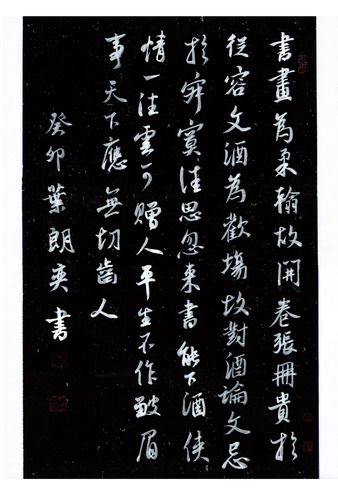 書畫為柔翰故開卷張冊貴於
從容文酒為歡場故對酒論文忌
於寂寞佳思忽來書能下酒俠
情一往雲可贈人平生不作皺眉
事天下應無切齒人
癸卯葉朗奕書